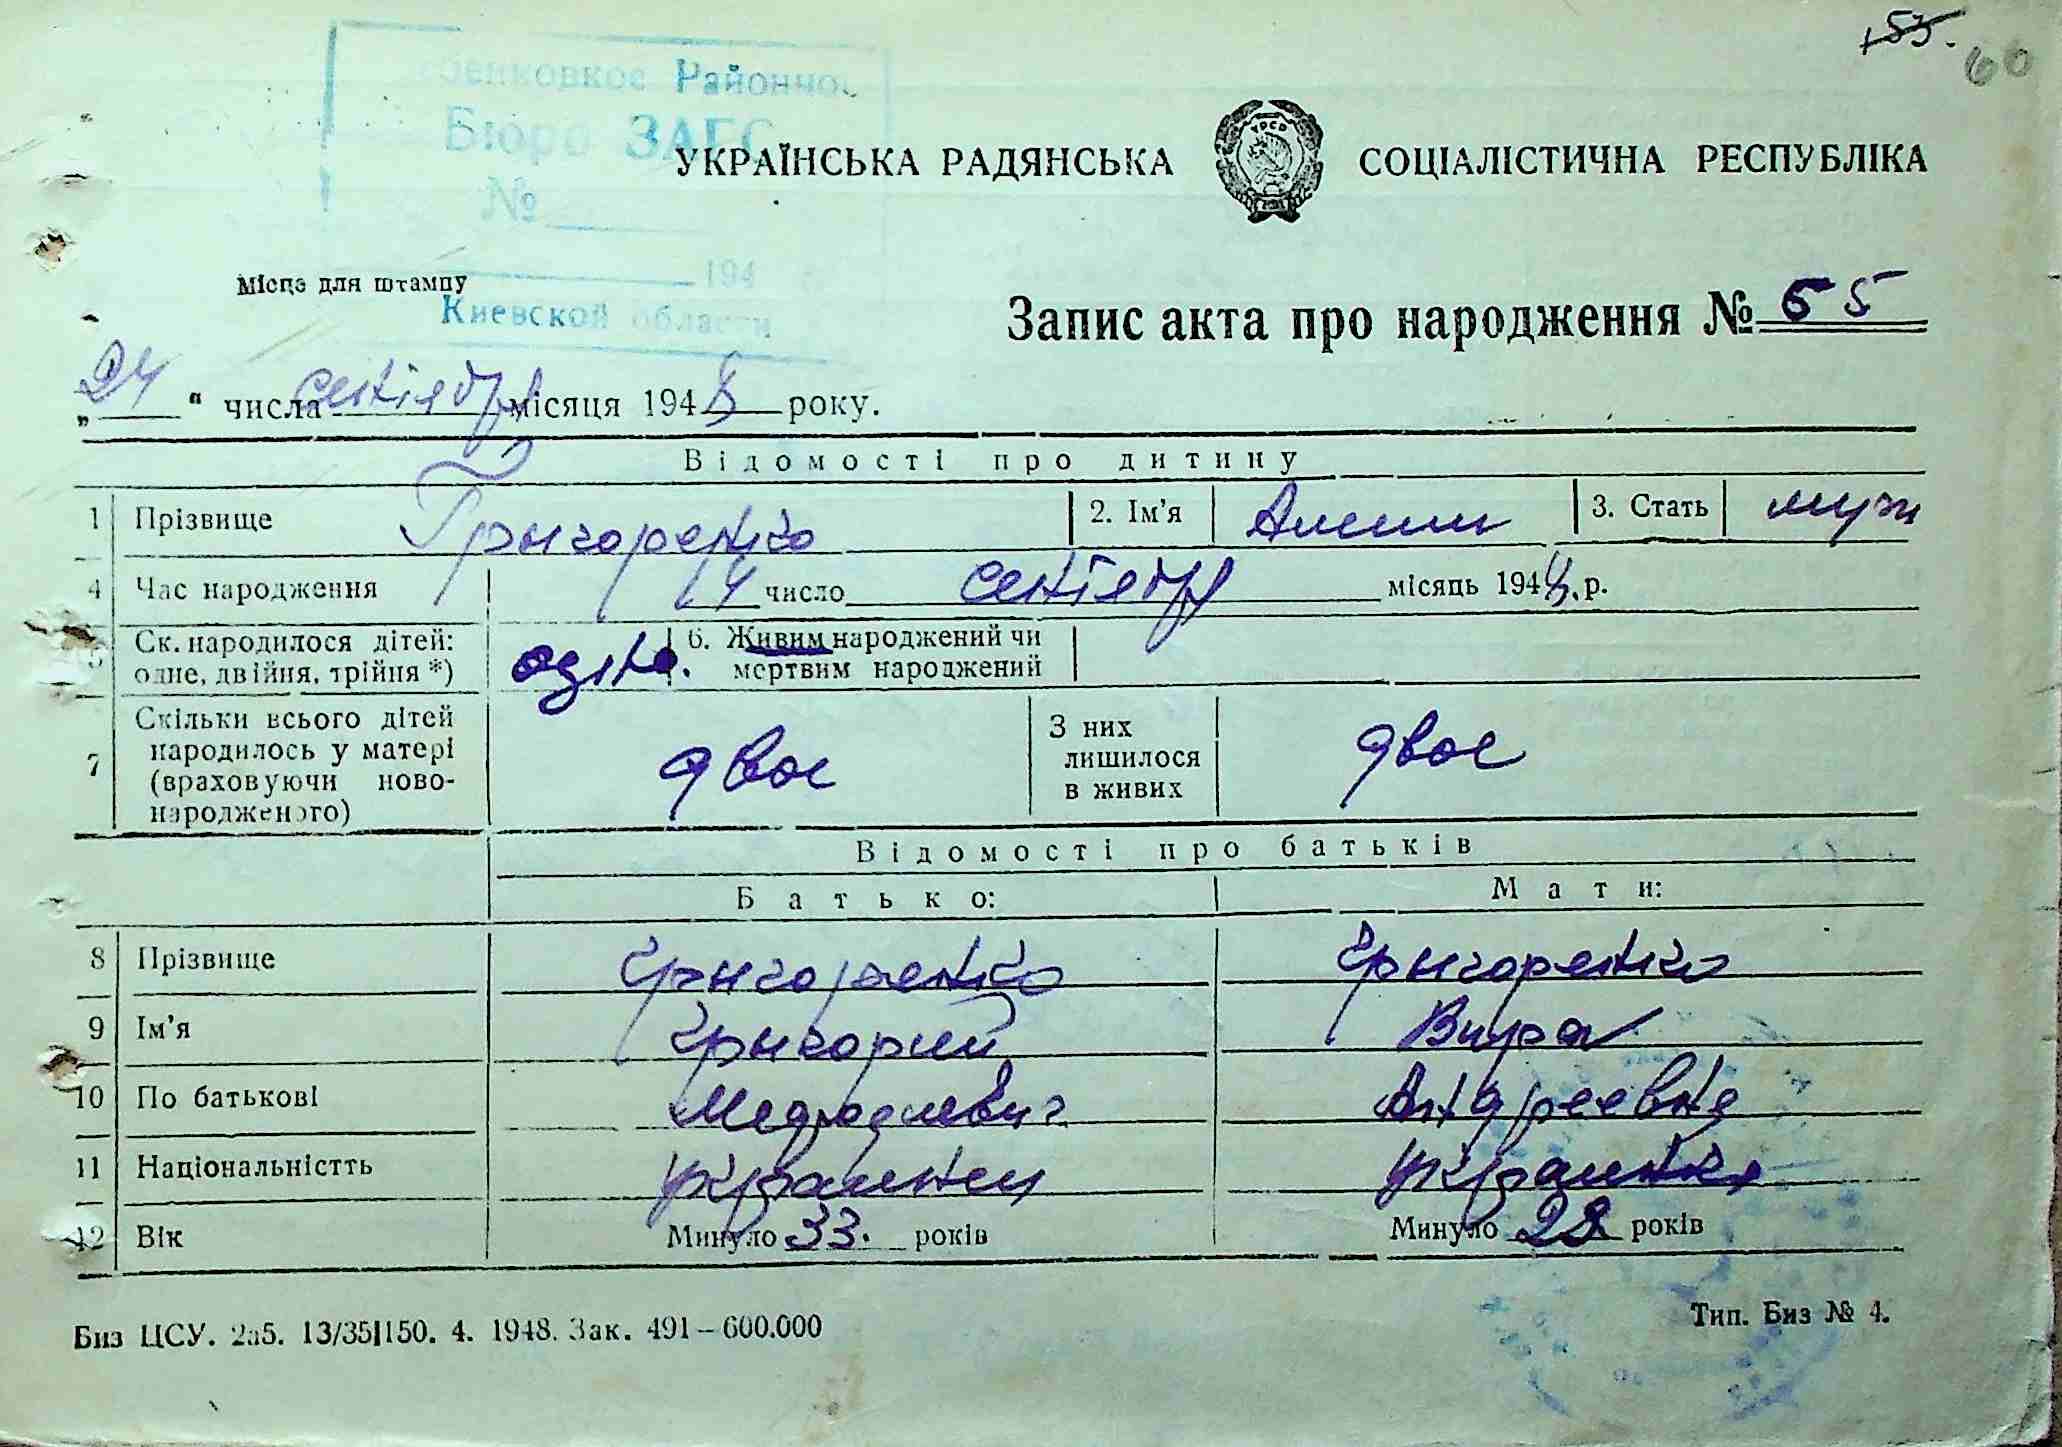 153.
60
Районно
Бюро ЗАГС
№
УКРАЇНСЬКА РАДЯНСЬКА СОЦІАЛІСТИЧНА РЕСПУБЛІКА
194
Місце для штампу
Киевской области
Запис акта про народження № 55
„24“ числа сентября місяця 1948 року.
Відомості про дитину
1 Прізвище Грыгоренко 2. Ім'я 3. Стать муж
4 Час народження 14 число сентября місяць 1948 р.
5 Ск. народилося дітей: одно. 6. Живим народжений чи
одне, двійня, трійня *) мертвим народжений
7 Скільки всього дітей народилось у матері (враховуючи ново-народженого) двое З них лишилося в живих двое
Відомості про батьків
Батько: Мати:
8 Прізвище Грыгоренко Грыгоренко
9 Ім'я Грыгорий Вира
10 По батькові Андреевна
11 Національністть украинец украинка
12 Вік Минуло 33. років Минуло 28 років
Биз ЦСУ. 2а5. 13/35|150. 4. 1948. Зак. 491–600.000
Тип. Биз № 4.